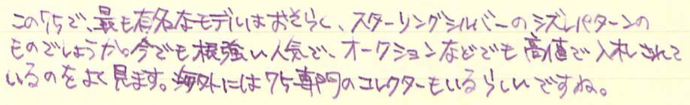 この75で、最も有名なモデルはおそらく、スターリングシルバーのシズレパターンの
ものでしょうか。今でも根強い人気で、オークションなどでも高値で入札されて
いるのをよく見ます。海外には75専門のコレクターもいるらしいですね。